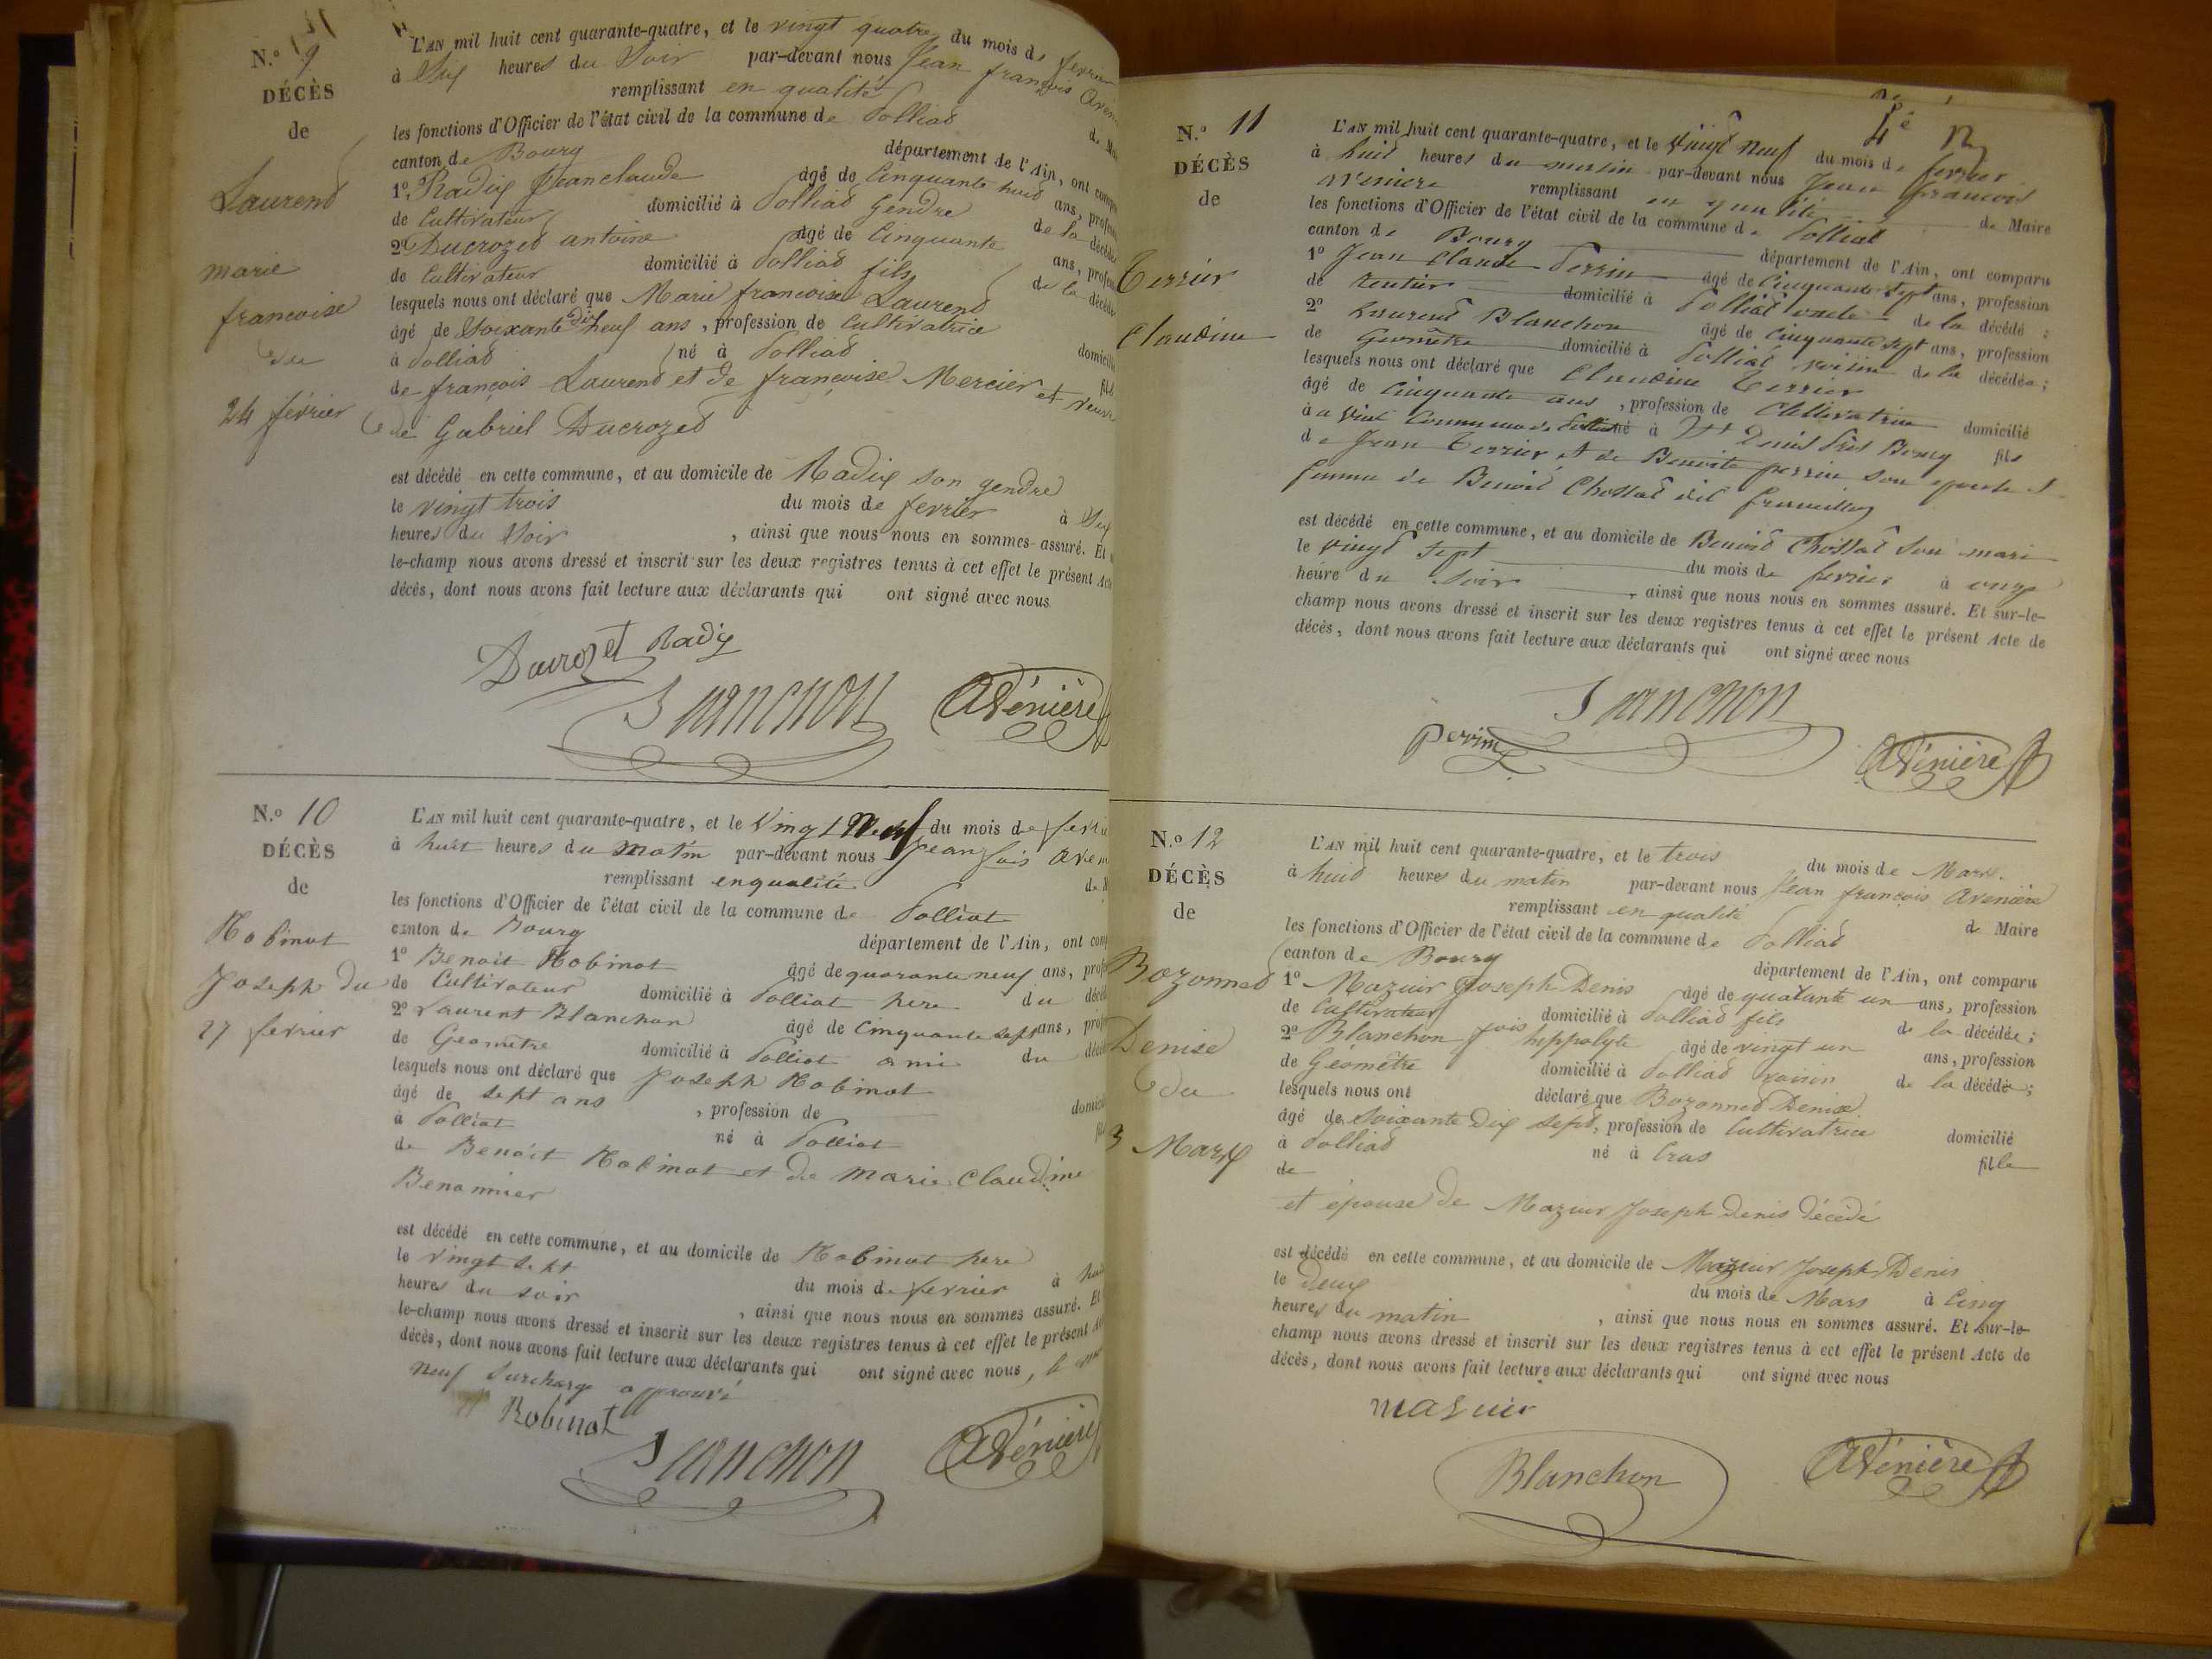 N.º 9
DÉCÈS
de
Laurend
marie
francoise
du
24 février
L'AN mil huit cent quarante-quatre, et le vingt quatre du mois de fevrier
à Six heures du Soir par-devant nous Jean françois
remplissant en qualité
les fonctions d'Officier de l'état civil de la commune de Polliad
canton de Bourg département de l'Ain, ont
1º Radix Jean claude âgé de Cinquante huid ans,
de Cultivateur domicilié à Polliad Gendre de la
2º Ducrozed antoine âgé de Cinquante ans,
de Cultivateur domicilié à Polliad fils de la
lesquels nous ont déclaré que Marie francoise Laurend
âgé de Soixante Dix neuf ans, profession de Cultivatrice
à Polliad né à Polliad
de françois Laurend et de françoise Mercier et veuve
de Gabriel Ducrozed
est décédé en cette commune, et au domicile de Radix son gendre
le vingt trois du mois de fevrier à Six
heures du Soir, ainsi que nous nous en sommes assuré. Et
le-champ nous avons dressé et inscrit sur les deux registres tenus à cet effet le présent Acte
décès, dont nous avons fait lecture aux déclarants qui ont signé avec nous
Ducrozet Radix
Blanchon Avénière
N.º 10
DÉCÈS
de
Robinat
Joseph du
27 fevrier
L'AN mil huit cent quarante-quatre, et le Vingt Neuf du mois de
à huit heures du matin par-devant nous Jean fois
remplissant en qualité
les fonctions d'Officier de l'état civil de la commune de Polliat
canton de Bourg département de l'Ain, ont
1º Benoit Robinat âgé de quarante neuf ans,
de Cultivateur domicilié à Polliat pere du
2º Laurent Blanchon âgé de Cinquante sept ans,
de Géomètre domicilié à Polliat ami du
lesquels nous ont déclaré que Joseph Robinat
âgé de sept ans, profession de
à Polliat né à Polliat
de Benoit Robinat et de marie Claudine
Benonnier
est décédé en cette commune, et au domicile de Robinat pere
le vingt sept du mois de fevrier à
heures du soir, ainsi que nous nous en sommes assuré. Et
le-champ nous avons dressé et inscrit sur les deux registres tenus à cet effet le présent
décès, dont nous avons fait lecture aux déclarants qui ont signé avec nous, le
neuf surcharge approuvé
Robinat
Blanchon Avénière
N.º 11
DÉCÈS
de
Terrier
Claudine
L'AN mil huit cent quarante-quatre, et le Vingt Neuf du mois de fevrier
à huid heures du matin par-devant nous Jean francois
aveniere remplissant en qualité de Maire
les fonctions d'Officier de l'état civil de la commune de Polliat
canton de Bourg département de l'Ain, ont comparu
1º Jean Claude Perrin âgé de Cinquante sept ans, profession
de rentier domicilié à Polliat oncle de la décédé ;
2º Laurent Blanchon âgé de cinquante sept ans, profession
de Géomètre domicilié à Polliat voisin de la décédée ;
lesquels nous ont déclaré que Claudine Terrier
âgé de Cinquante ans, profession de Cultivatrice domicilié
à né à St Denis Près Bourg fils
de Jean Terrier et de Benoite perrin son epouse et
femme de Benoit Chossat
est décédé en cette commune, et au domicile de Benoit Chossat son mari
le vingt sept du mois de fevrier à onze
heure du soir, ainsi que nous nous en sommes assuré. Et sur-le-
champ nous avons dressé et inscrit sur les deux registres tenus à cet effet le présent Acte de
décès, dont nous avons fait lecture aux déclarants qui ont signé avec nous
Blanchon
perrin Avénière
N.º 12
DÉCÈS
de
Bozonned
Denise
du
3 Mars
L'AN mil huit cent quarante-quatre, et le trois du mois de Mars.
à huid heures du matin par-devant nous Jean françois Avenière
remplissant en qualité de Maire
les fonctions d'Officier de l'état civil de la commune de Polliad
canton de Bourg département de l'Ain, ont comparu
1º Mazuir Joseph Denis âgé de quarante un ans, profession
de Cultivateur domicilié à Polliad fils de la décédée ;
2º Blanchon fois hippolyte âgé de vingt un ans, profession
de Géomètre domicilié à Polliad voisin de la décédée ;
lesquels nous ont déclaré que Bozonned Denise
âgé de Soixante Dix sept, profession de Cultivatrice domicilié
à Polliad né à Cras fille
de
et épouse de Mazuir Joseph Denis décédé
est décédé en cette commune, et au domicile de Mazuir Joseph Denis
le Deux du mois de Mars à Cinq
heures du matin, ainsi que nous nous en sommes assuré. Et sur-le-
champ nous avons dressé et inscrit sur les deux registres tenus à cet effet le présent Acte de
décès, dont nous avons fait lecture aux déclarants qui ont signé avec nous
mazuir
Blanchon Avénière